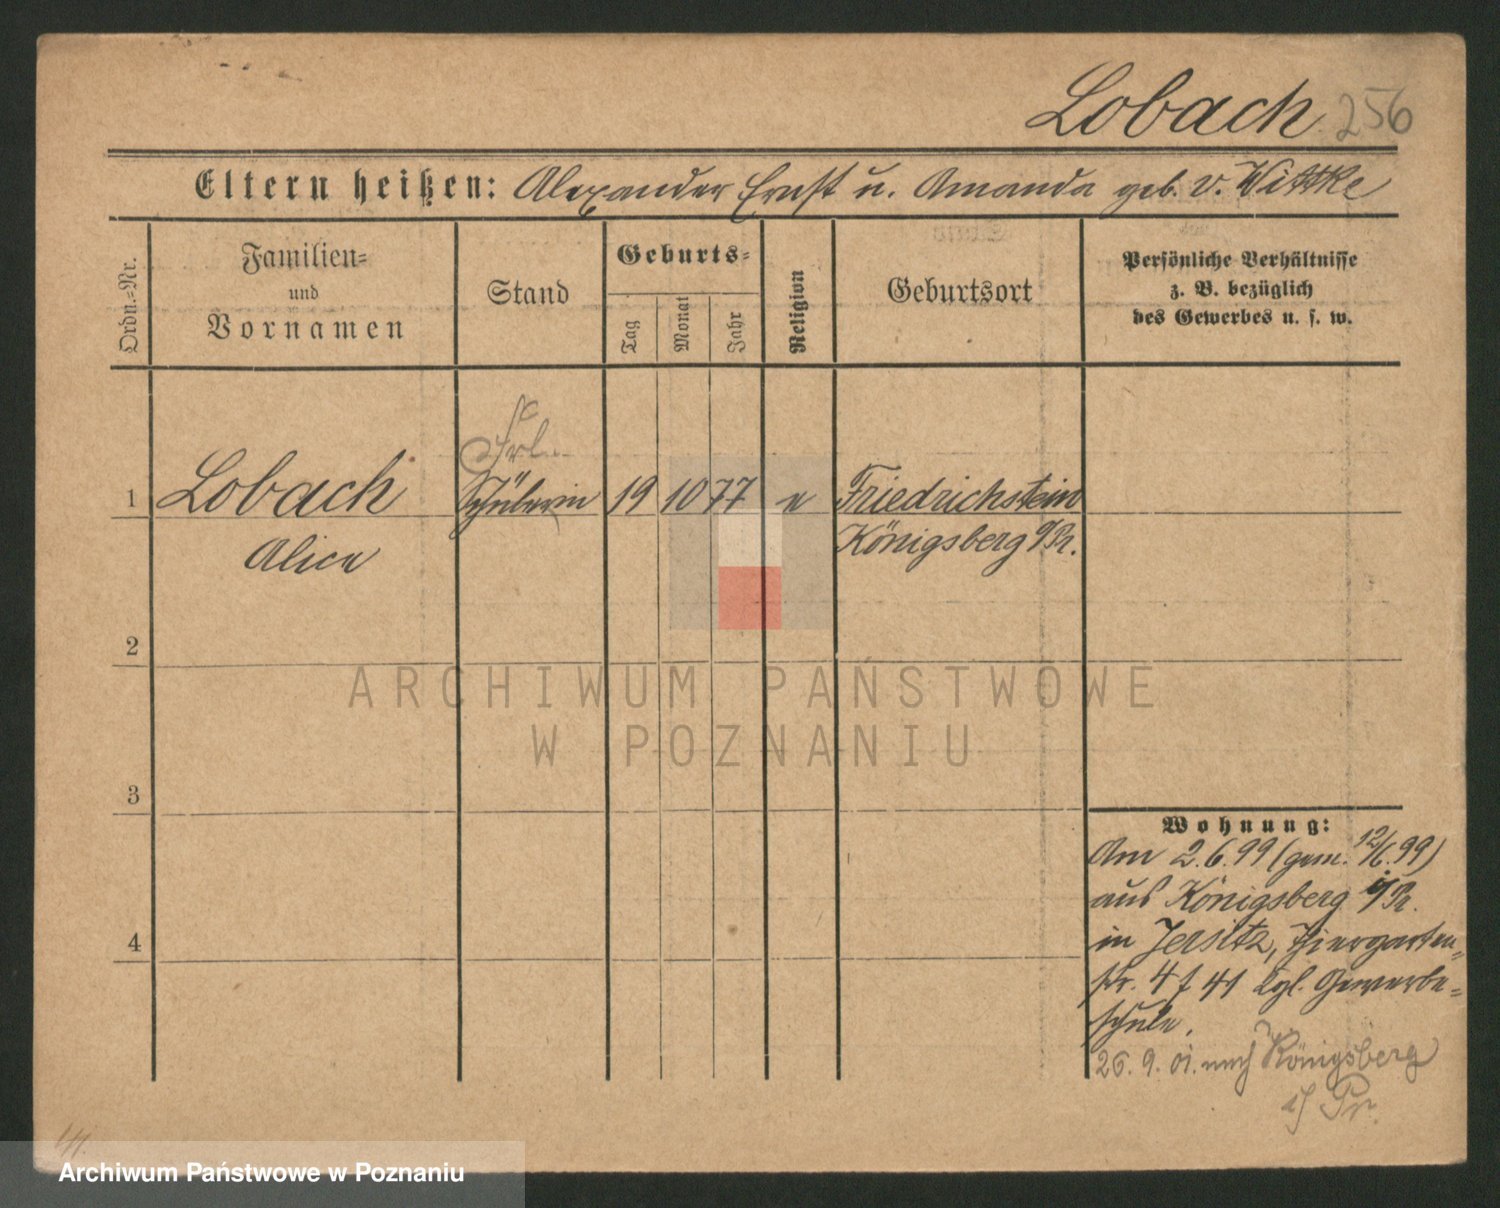 Lobach 256
Eltern heißen: Alexander Ernst u. Amanda geb. v. Wittke
Ordn.=Nr.
Familien=
und
Vornamen
Stand
Geburts=
Tag
Monat
Jahr
Religion
Geburtsort
Persönliche Verhältnisse
z. B. bezüglich
des Gewerbes u. s. w.
Frl.
1 Lobach Schülerin 19 10 77 e Friedrichstein
Alice Königsberg i/Pr.
2
ARCHIWUM PAŃSTWOWE
W POZNANIU
3
Wohnung:
Am 2.6.99 (gem. 12/6.99)
aus Königsberg i/Pr.
in Jersitz, Thiergarten=
str. 4 f 41 Kgl. Gewerbe=
schule.
4
26. 9. 01. nach Königsberg
i/ Pr.
Archiwum Państwowe w Poznaniu